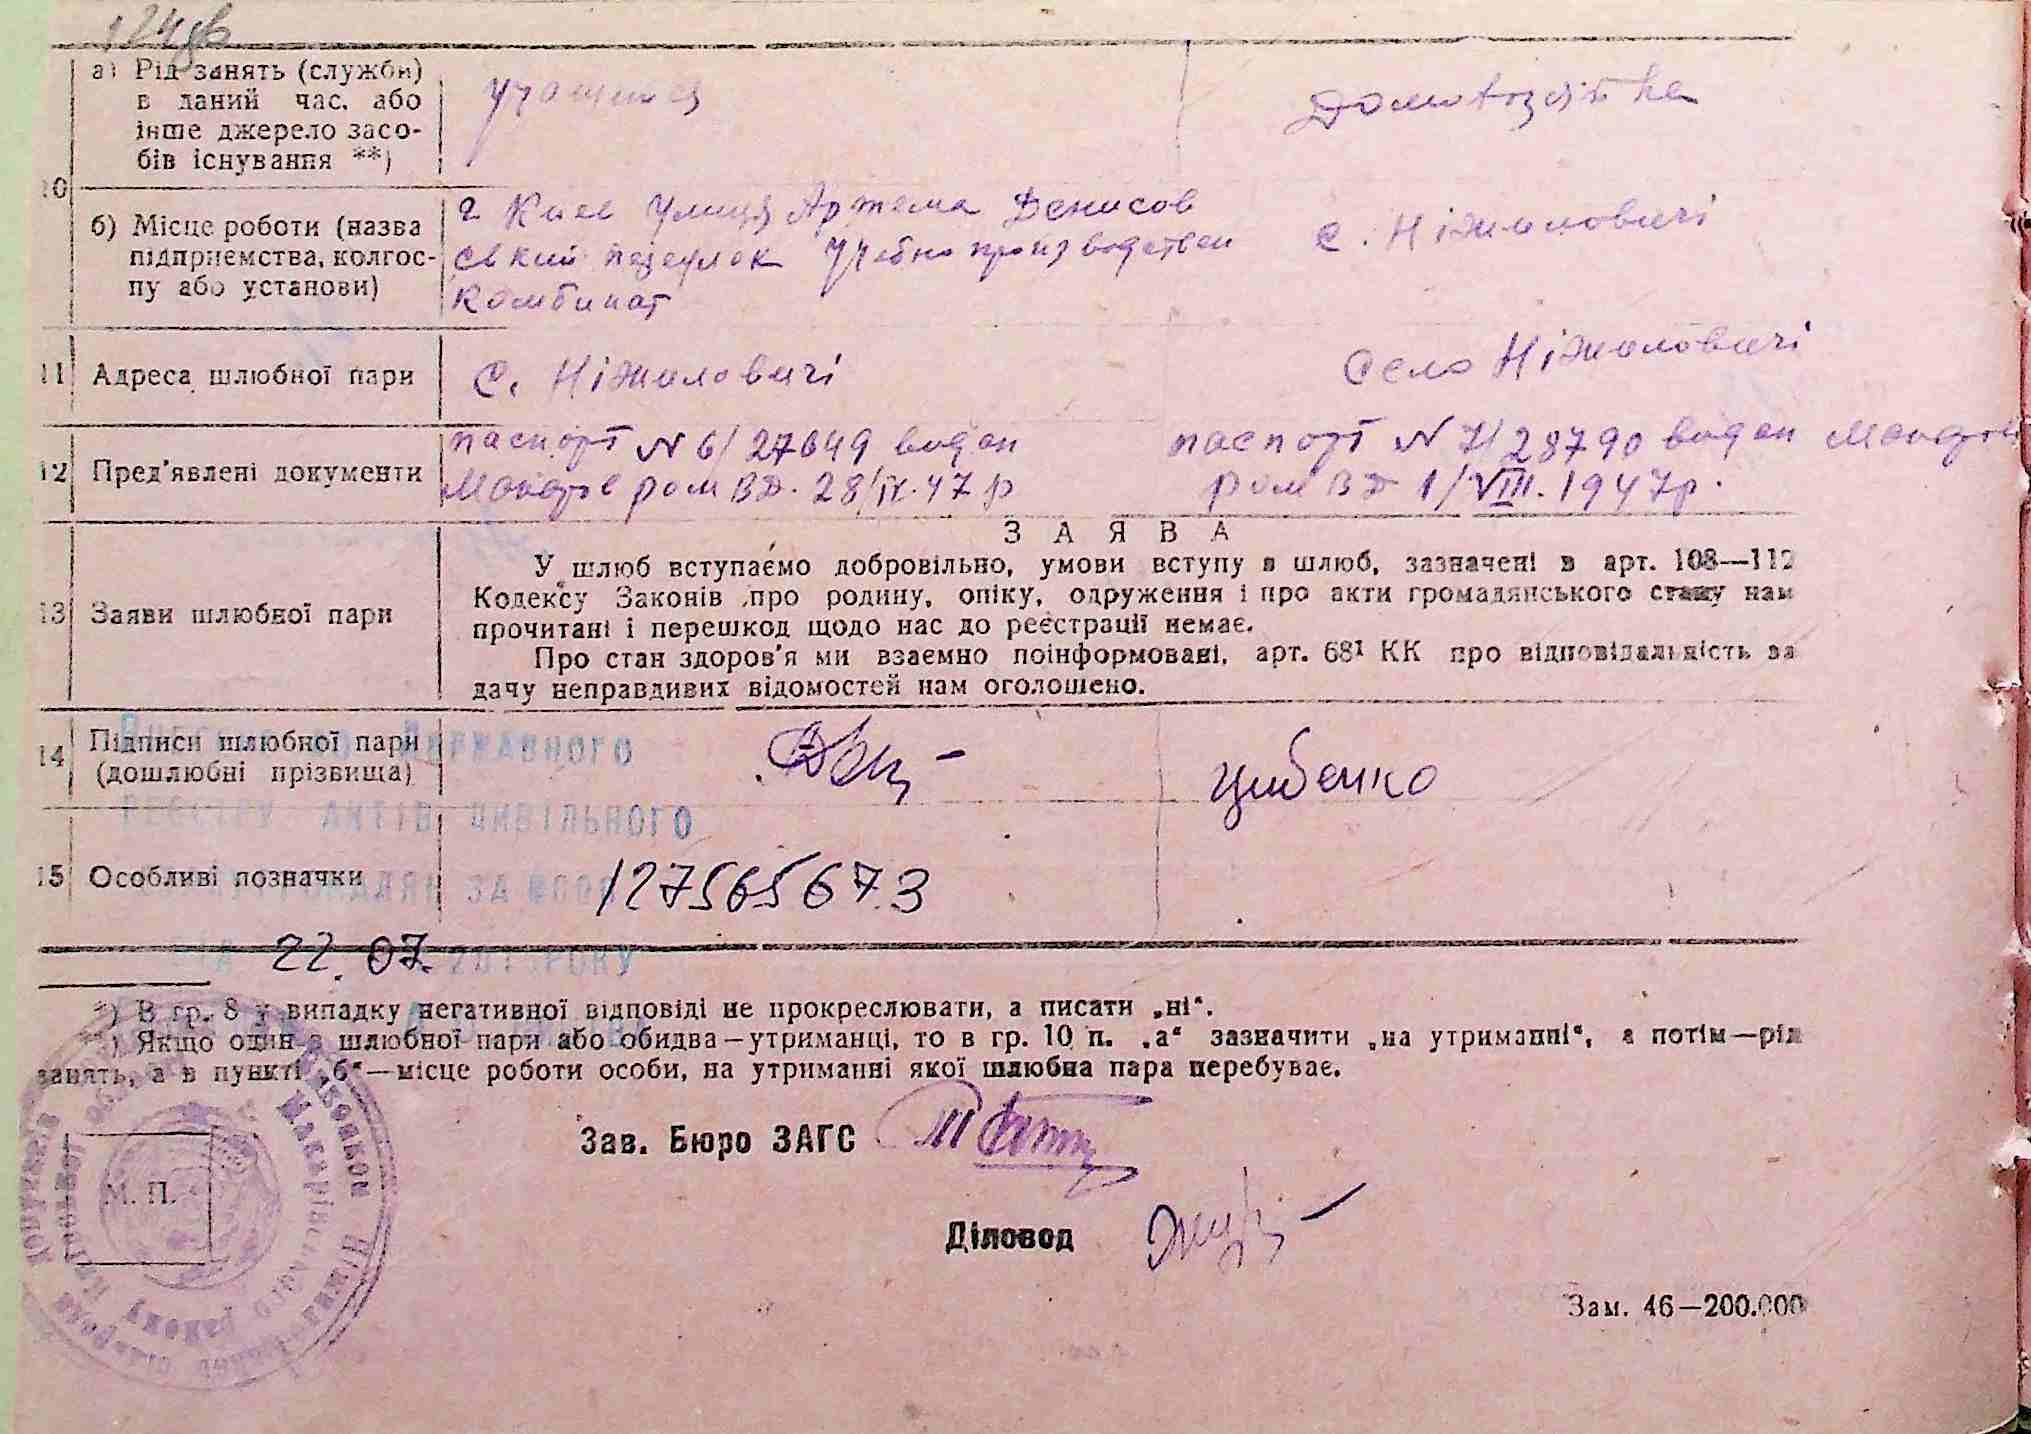 124зв
10 а) Рід занять (служби)
в даний час, або
інше джерело засо-
бів існування **)
учащийся
Домохазяйка
б) Місце роботи (назва
підприємства, колгос-
пу або установи)
г Киев Улиця Артема Денисов
ский переулок Учебно производствен
комбинат
с. Ніжиловичі
11 Адреса шлюбної пари
с. Ніжиловичі
Село Ніжиловичі
12 Пред'явлені документи
паспорт № 6/27649 видан
Макарів ром ВД. 28/IX.47 р
паспорт № 7/28790 видан Макарів
ром ВД 1/VIII.1947р.
ЗАЯВА
13 Заяви шлюбної пари
У шлюб вступаємо добровільно, умови вступу в шлюб, зазначені в арт. 108—112
Кодексу Законів про родину, опіку, одруження і про акти громадянського стану нам
прочитані і перешкод щодо нас до реєстрації немає.
Про стан здоров'я ми взаємно поінформовані, арт. 68¹ КК про відповідальність за
дачу неправдивих відомостей нам оголошено.
14 Підписи шлюбної пари
(дошлюбні прізвища)
Цибенко
Державного
реєстру актів цивільного
15 Особливі позначки
127565673
громадян за
22.07. року
*) В гр. 8 у випадку негативної відповіді не прокреслювати, а писати „ні“.
**) Якщо один з шлюбної пари або обидва—утриманці, то в гр. 10 п. „а“ зазначити „на утриманні“, а потім—рід
занять, а в пункті „б“—місце роботи особи, на утриманні якої шлюбна пара перебуває.
Зав. Бюро ЗАГС
М. П.
Діловод
Зам. 46—200.000
Макарівського району Київської області